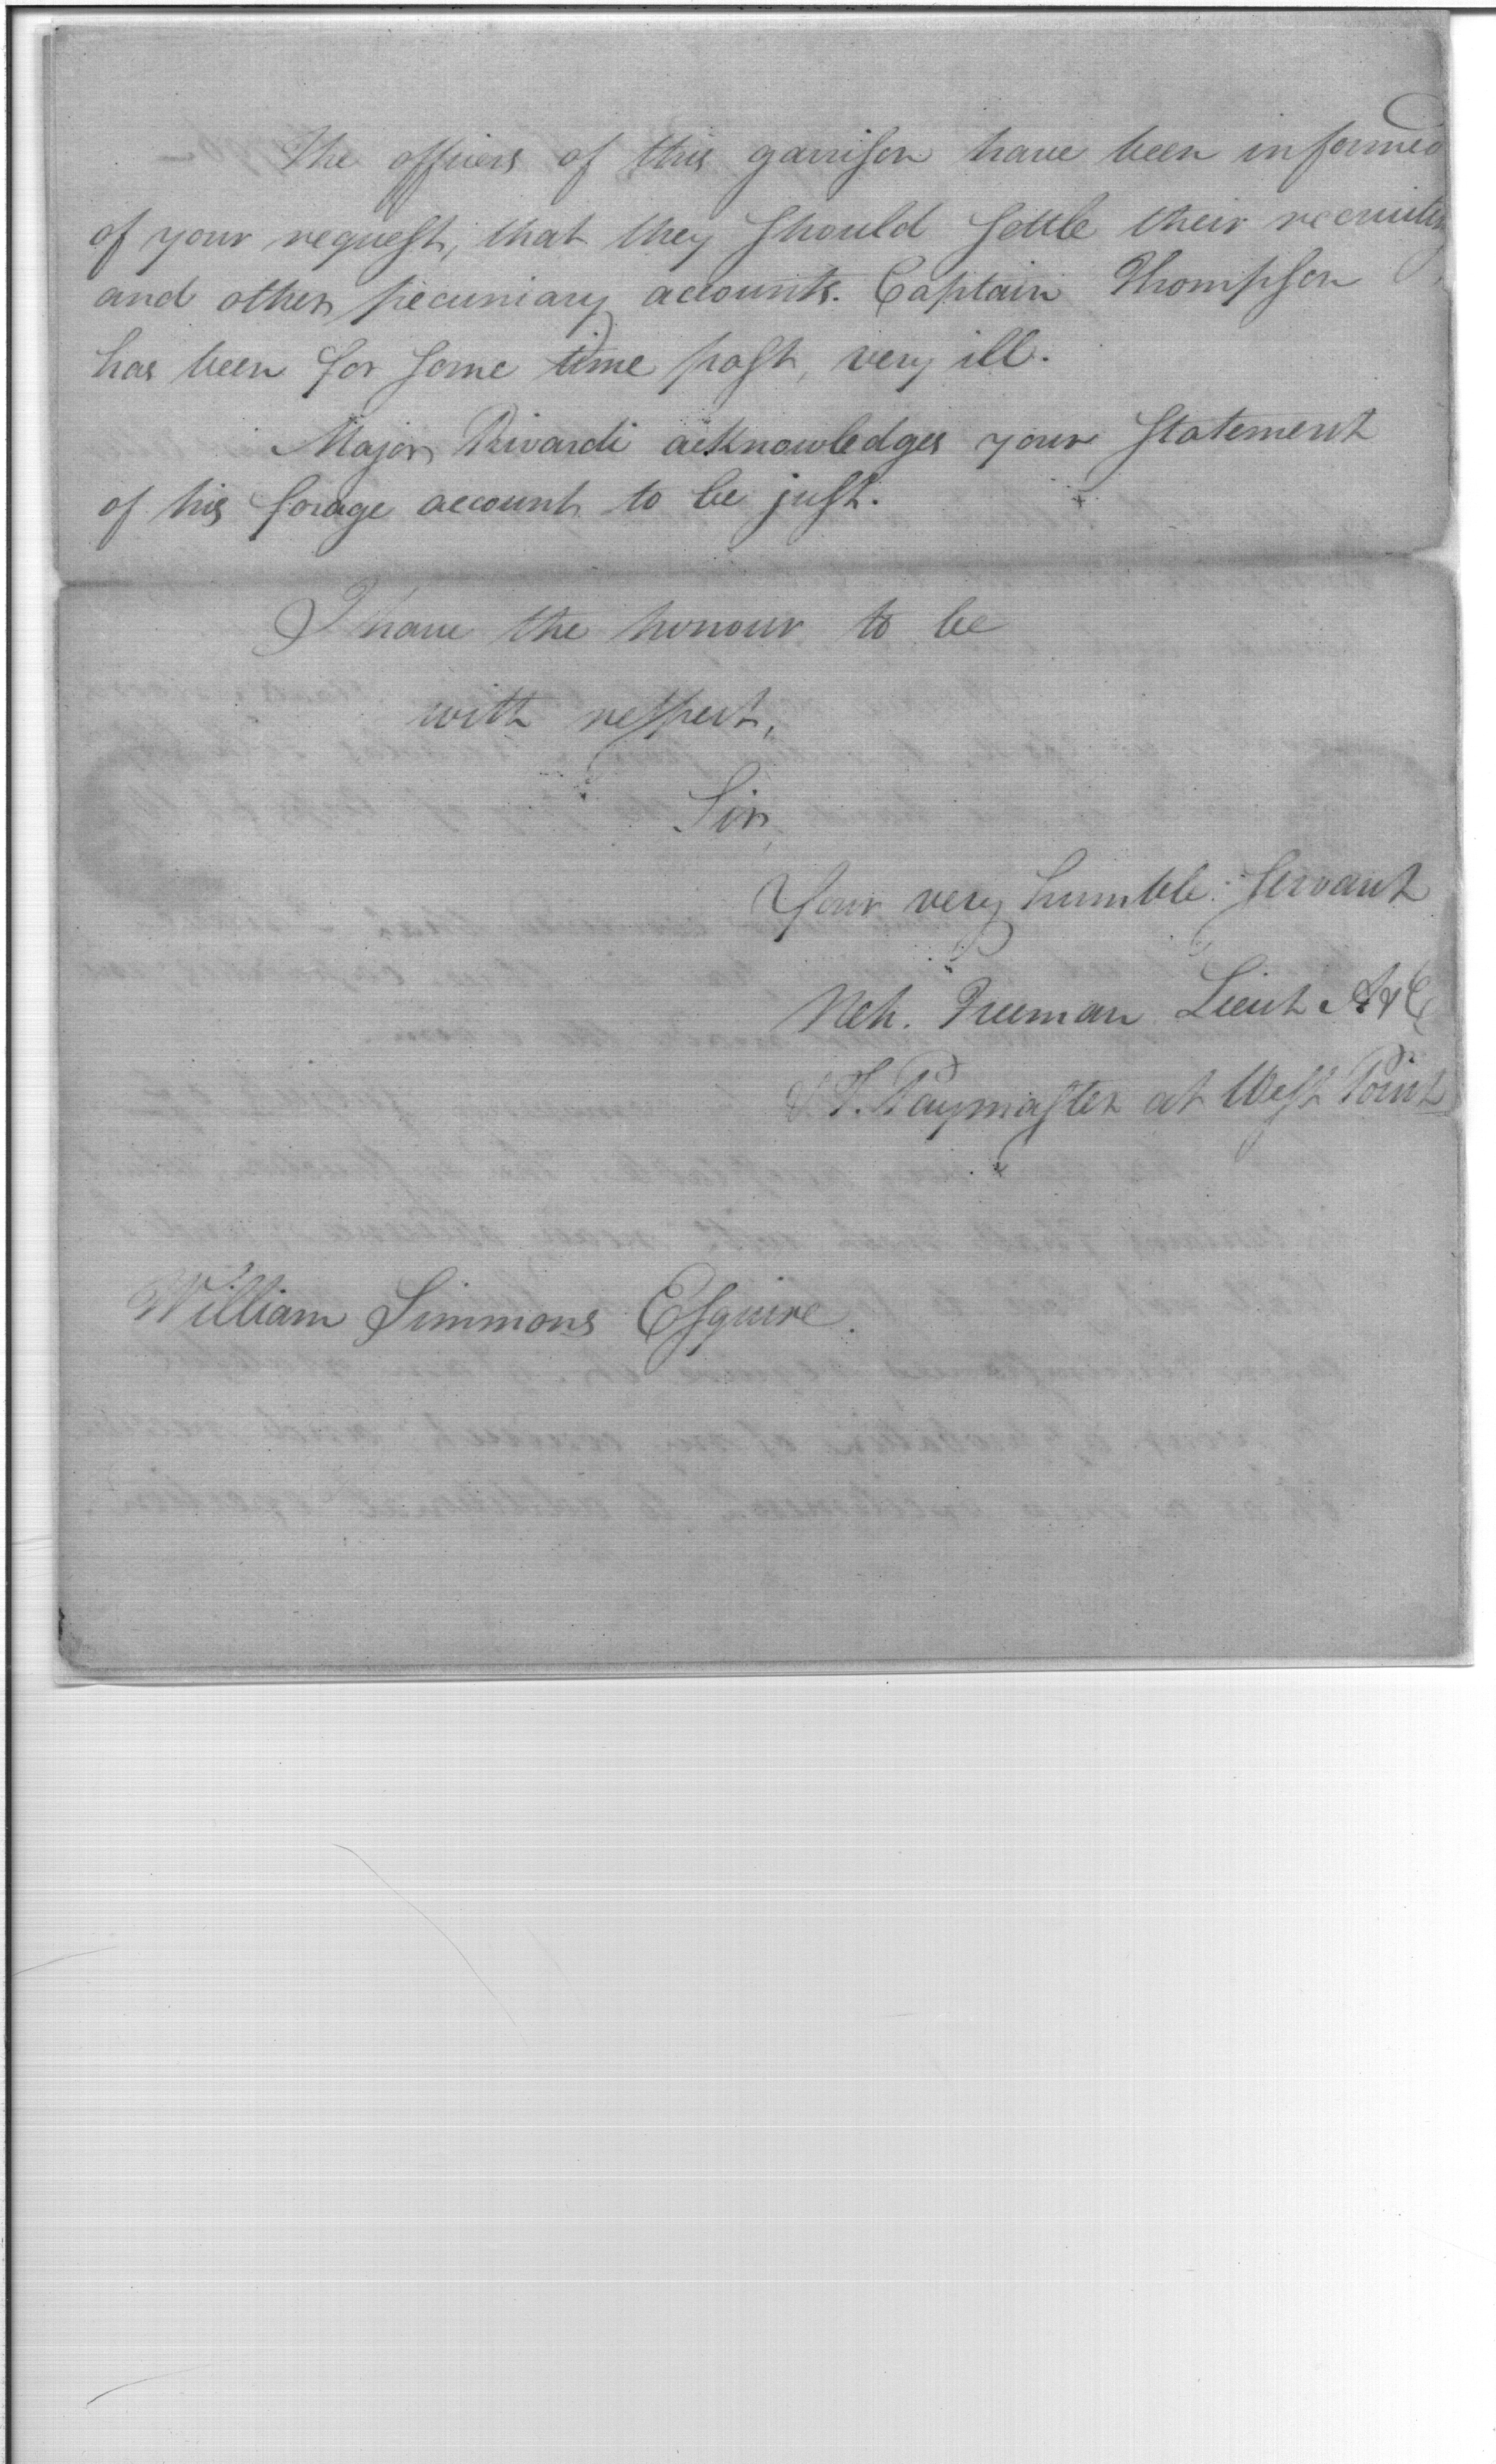 The officers of this garrison have been informed
of your request, that they should settle their recruiting
and other pecuniary accounts. Captain Thompson
has been for some time past, very ill.
Major Rivardi acknowledges your statement
of his forage account to be just.
I have the honour to be
with respect,
Sir,
Your very humble servant
Neh. Freeman Lieut A&E
Paymaster at West Point
William Simmons Esquire.